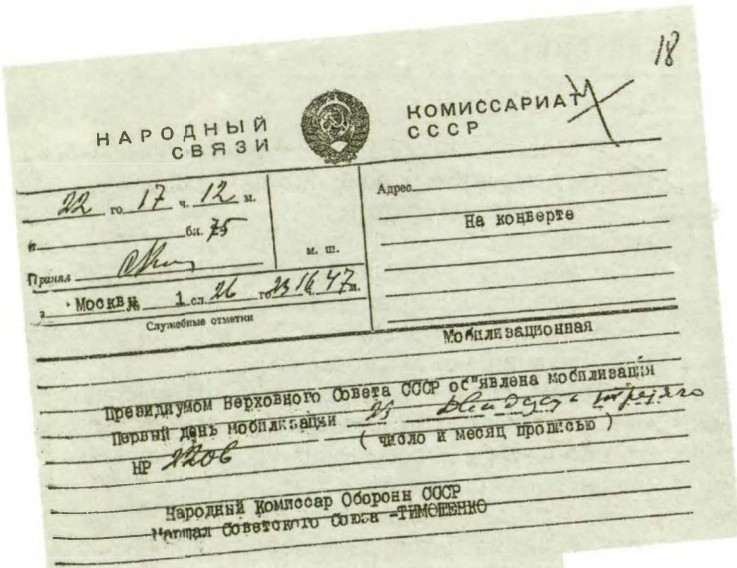 18
НАРОДНЫЙ КОМИССАРИАТ
СВЯЗИ СССР
22 го 17 ч. 12 м.
бл. 75
м. ш.
Принял
Адрес
На конверте
з Москвы 1 сл. 26 го 23 16 47 м.
Служебные отметки
Мобилизационная
Президиумом Верховного Совета СССР об"явлена мобилизация
Первый день мобилизации 23 двадцать третьего
( число и месяц прописью )
НР 2206
Народный Комиссар Обороны СССР
Маршал Советского Союза -ТИМОШЕНКО